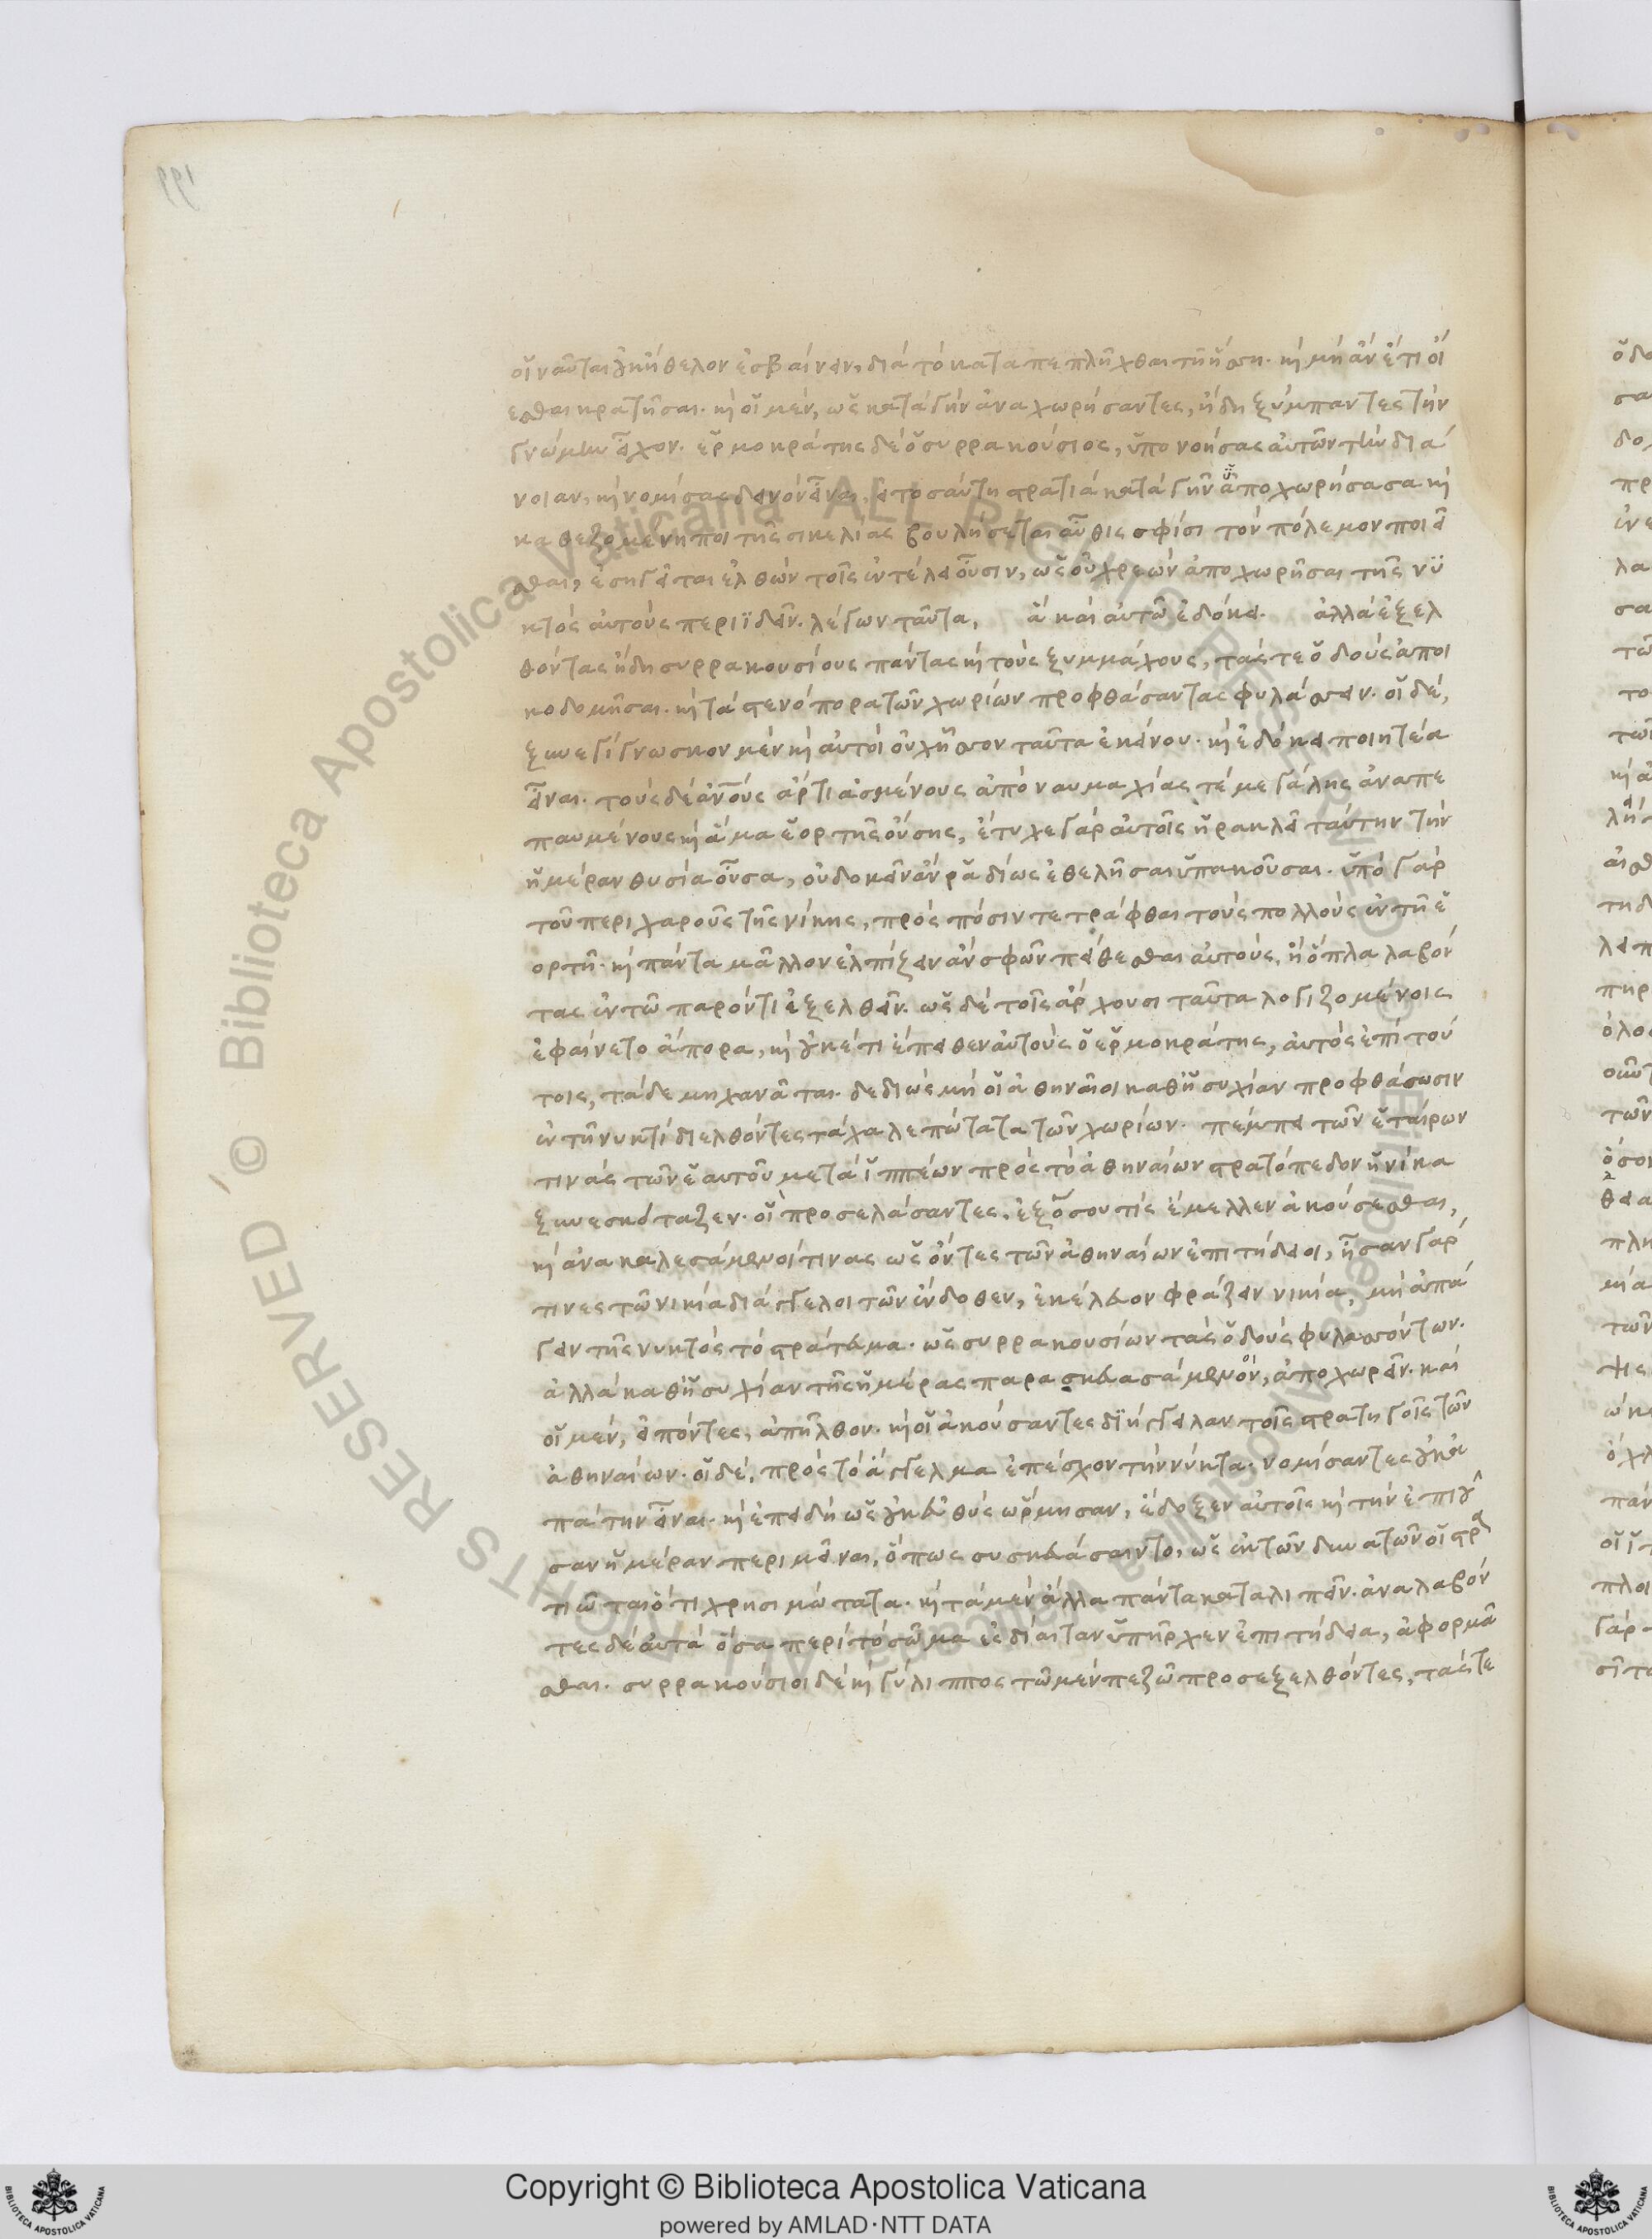 οἱ ναῦται οὐκ ἤθελον ἐσβαίνειν, διὰ τὸ καταπεπλῆχθαι τῇ ἥσσῃ. καὶ μὴ ἂν ἔτι οἴ
εσθαι κρατῆσαι. καὶ οἱ μὲν, ὡς κατὰ γῆν ἀναχωρήσαντες, ἤδη ξύμπαντες τὴν
γνώμην εἶχον. ἑρμοκράτης δὲ ὁ συρρακούσιος, ὑπονοήσας αὐτῶν τὴν διά
νοιαν, καὶ νομίσας δεινὸν εἶναι, εἰ τοσαύτη στρατιὰ κατὰ γῆν ἀποχωρήσασα καὶ
καθεζομένη ποι τῆς σικελίας βουλήσεται αὖθις σφίσι τὸν πόλεμον ποιεῖ
σθαι, ἐσηγεῖται ἐλθὼν τοῖς ἐν τέλει οὖσιν, ὡς οὐ χρεὼν ἀποχωρῆσαι τῆς νυ
κτὸς αὐτοὺς περιϊδεῖν. λέγων ταῦτα, ἃ καὶ αὐτῷ ἐδόκει. ἀλλὰ ἐξελ
θόντας ἤδη συρρακουσίους πάντας καὶ τοὺς ξυμμάχους, τάς τε ὁδοὺς ἀποι
κοδομῆσαι. καὶ τὰ στενόπορα τῶν χωρίων προφθάσαντας φυλάσσειν. οἱ δὲ,
ξυνεγίγνωσκον μὲν καὶ αὐτοὶ οὐχ ἧσσον ταῦτα ἐκείνου. καὶ ἐδόκει ποιητέα
εἶναι. τοὺς δὲ ἀνους ἄρτι ἀσμένους ἀπὸ ναυμαχίας τὲ μεγάλης ἀναπε
παυμένους καὶ ἅμα ἑορτῆς οὔσης, ἔτυχε γὰρ αὐτοῖς ἡρακλεῖ ταύτην τὴν
ἡμέραν θυσία οὖσα, οὐ δοκεῖν ἂν ῥᾳδίως ἐθελῆσαι ὑπακοῦσαι. ὑπὸ γὰρ
τοῦ περιχαροῦς τῆς νίκης, πρὸς πόσιν τετράφθαι τοὺς πολλοὺς ἐν τῇ ἑ
ορτῇ. καὶ πάντα μᾶλλον ἐλπίζειν ἂν σφῶν πείθεσθαι αὐτοὺς, ἢ ὅπλα λαβόν
τας ἐν τῷ παρόντι ἐξελθεῖν. ὡς δὲ τοῖς ἄρχουσι ταῦτα λογιζομένοις
ἐφαίνετο ἄπορα, καὶ οὐκέτι ἔπειθεν αὐτοὺς ὁ ἑρμοκράτης, αὐτὸς ἐπὶ τού
τοις, τάδε μηχανᾶται. δεδιὼς μὴ οἱ ἀθηναῖοι καθ' ἡσυχίαν προφθάσωσιν
ἐν τῇ νυκτὶ διελθόντες τὰ χαλεπώτατα τῶν χωρίων. πέμπει τῶν ἑταίρων
τινὰς τῶν ἑαυτοῦ μετὰ ἱππέων πρὸς τὸ ἀθηναίων στρατόπεδον ἡνίκα
ξυνεσκόταζεν. οἳ προσελάσαντες, ἐξ ὅσου τίς ἔμελλεν ἀκούσεσθαι,
καὶ ἀνακαλεσάμενοί τινας ὡς ὄντες τῶν ἀθηναίων ἐπιτήδειοι, ἦσαν γάρ
τινες τῷ νικίᾳ διάγγελοι τῶν ἔνδοθεν, ἐκέλευον φράζειν νικίᾳ, μὴ ἀπά
γειν τῆς νυκτὸς τὸ στράτευμα. ὡς συρρακουσίων τὰς ὁδοὺς φυλασσόντων.
ἀλλὰ καθ' ἡσυχίαν τῆς ἡμέρας παρασκευασάμενον, ἀποχωρεῖν. καὶ
οἱ μὲν, εἰπόντες, ἀπῆλθον. καὶ οἱ ἀκούσαντες διήγγειλαν τοῖς στρατηγοῖς τῶν
ἀθηναίων. οἱ δὲ, πρὸς τὸ ἄγγελμα ἐπέσχον τὴν νύκτα, νομίσαντες οὐκ
πάτην εἶναι. καὶ ἐπειδὴ ὡς οὐκ εὐθὺς ὥρμησαν, ἔδοξεν αὐτοῖς καὶ τὴν ἐπιοῦ
σαν ἡμέραν περιμεῖναι, ὅπως συσκευάσαιντο, ὡς ἐκ τῶν δυνατῶν οἱ στρα
τιῶται ὅτι χρησιμώτατα. καὶ τὰ μὲν ἄλλα πάντα καταλιπεῖν. ἀναλαβόν
τες δὲ αὐτὰ ὅσα περὶ τὸ σῶμα ἐς δίαιταν ὑπῆρχεν ἐπιτήδεια, ἀφορμᾶ
σθαι. συρρακούσιοι δὲ καὶ γύλιππος τῷ μὲν πεζῷ προσεξελθόντες, τάς τε
Copyright © Biblioteca Apostolica Vaticana
powered by AMLAD·NTT DATA